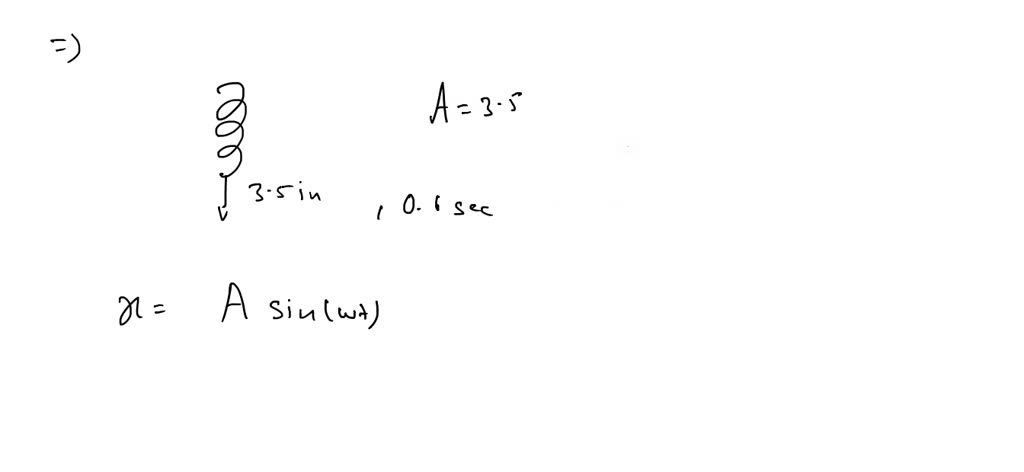 =)
A = 3.5
3.5 in , 0.6 sec
x = A sin(wt)